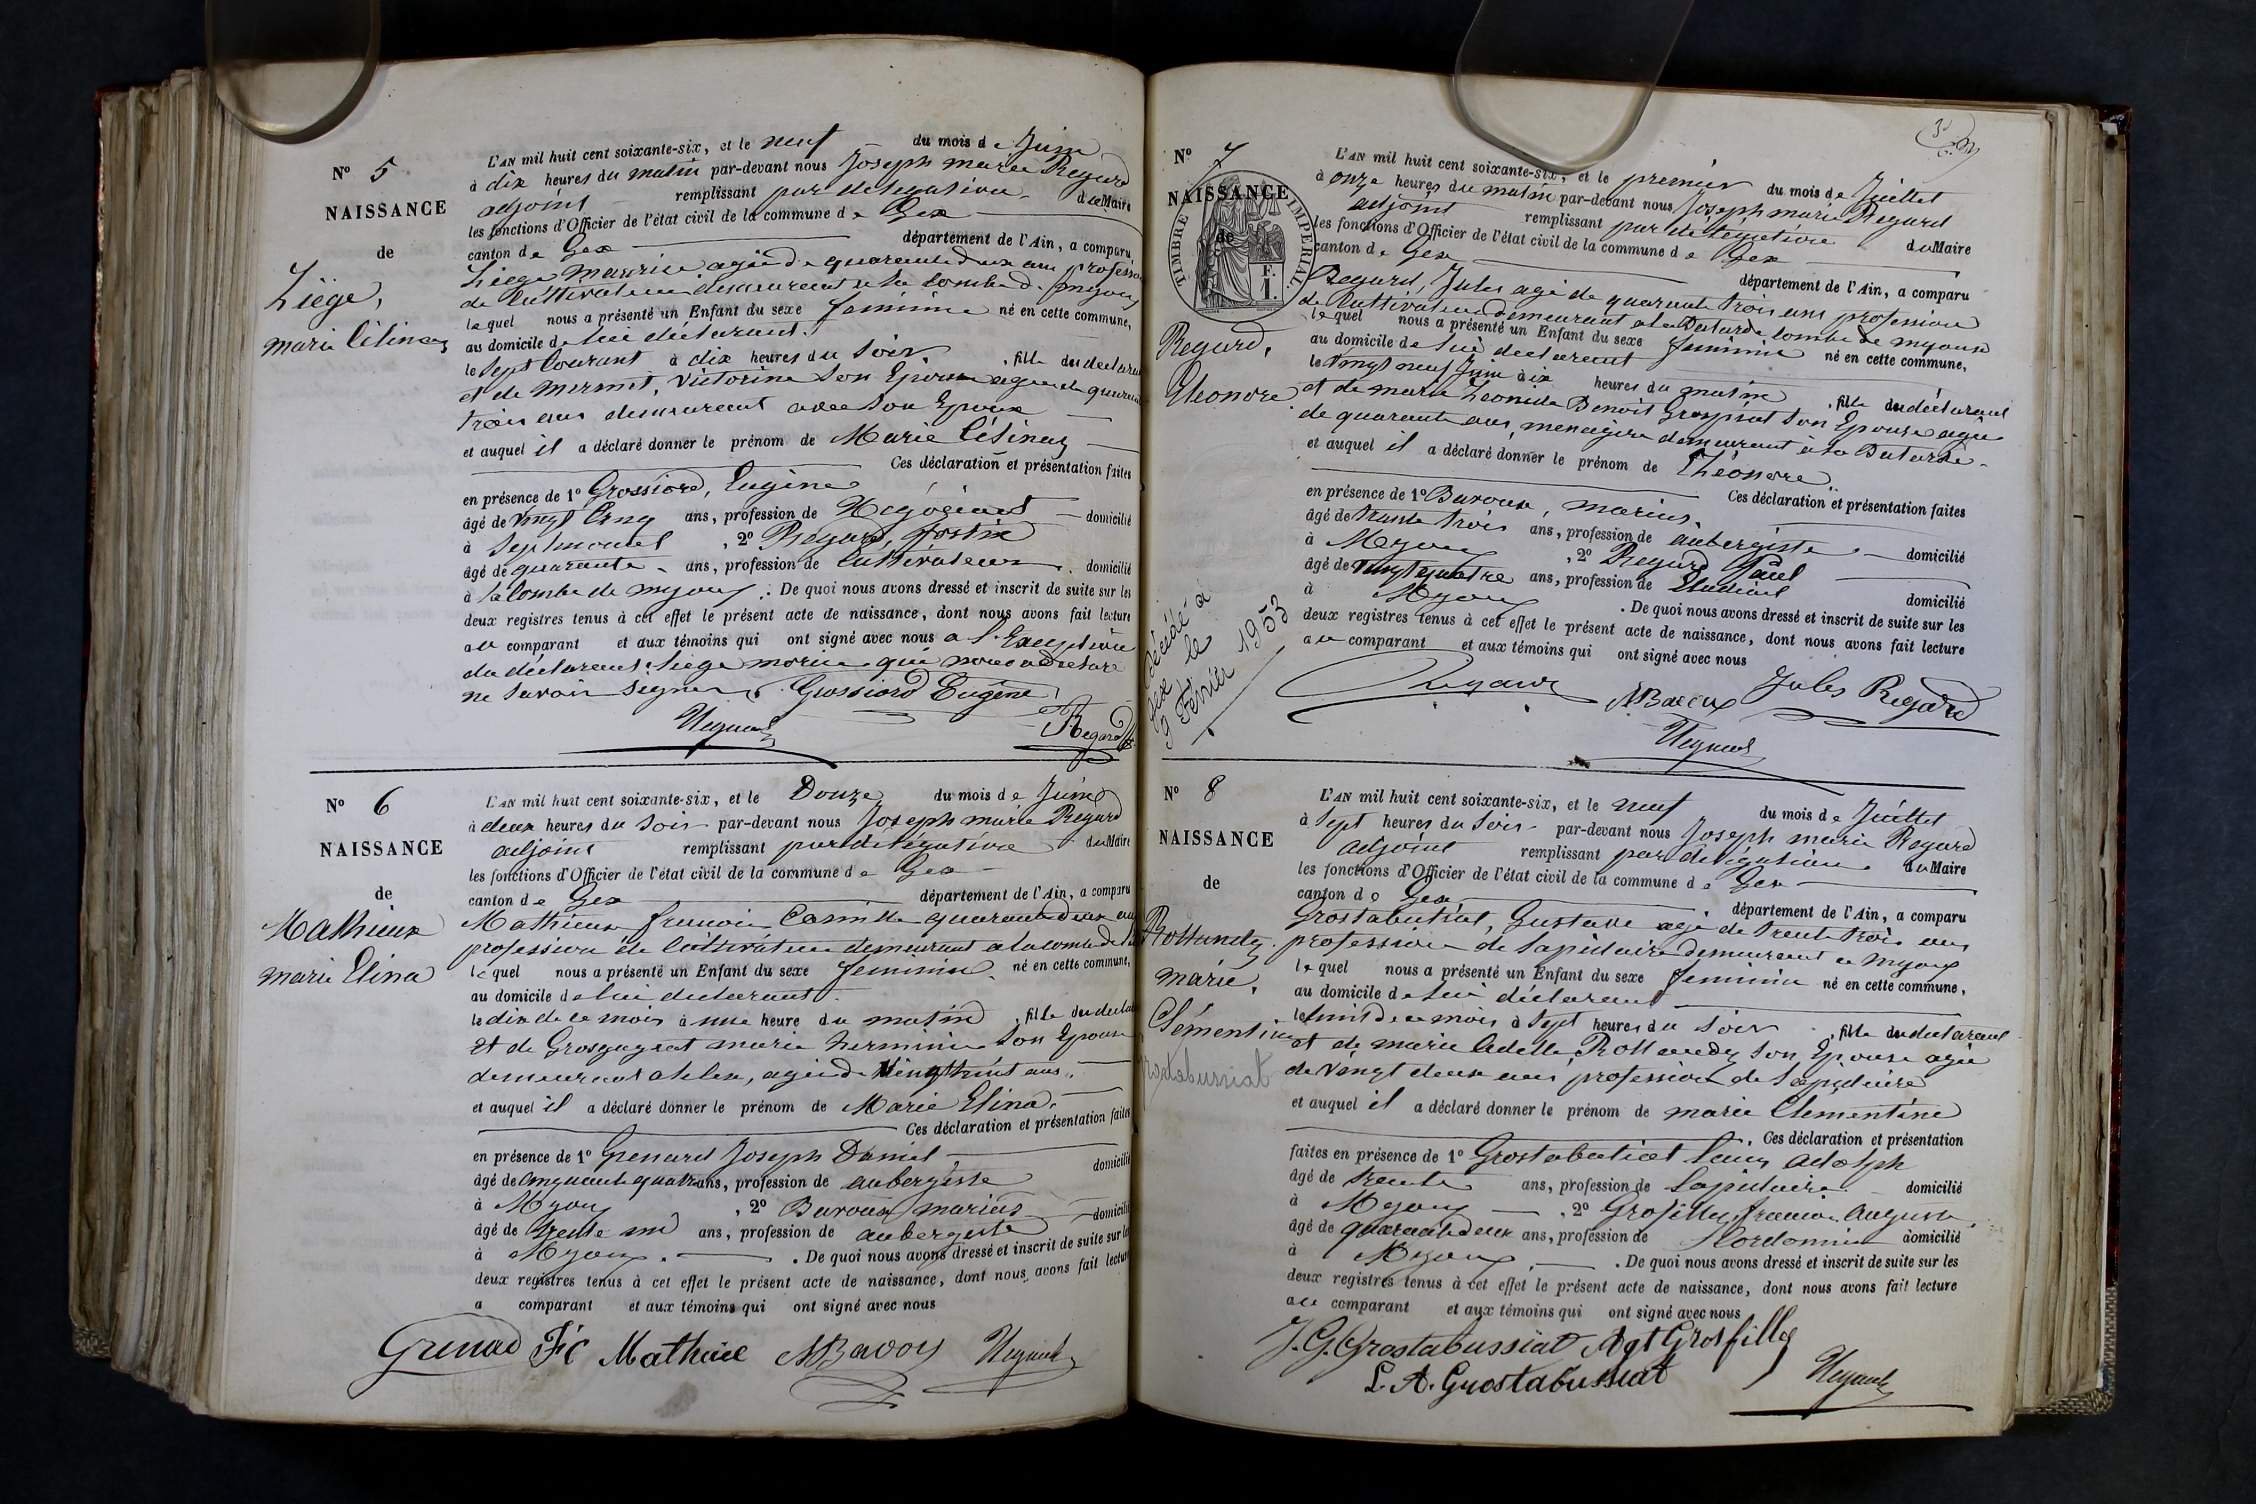 N° 5
NAISSANCE
de
Liège,
marie Célinay
L'AN mil huit cent soixante-six, et le neuf du mois de Juin
à dix heures du matin par-devant nous Joseph marie Regard
adjoint remplissant par délégation du Maire
les fonctions d'Officier de l'état civil de la commune de Gex
canton de Gex département de l'Ain, a comparu
Liege Maurice agé de quarante deux ans profession
de Cultivateur demeurant a la Combe de myoux
lequel nous a présenté un Enfant du sexe feminin né en cette commune,
au domicile de lui déclarant.
le sept Courant à dix heures du soir, fille du declarant
et de mermet, Victorine son Epouse agée de quarante
trois ans demeurant avec son Epoux
et auquel il a déclaré donner le prénom de Marie Célinay
Ces déclaration et présentation faites
en présence de 1° Grossiord, Eugène
âgé de vingt Cinq ans, profession de Négociant domicilié
à Septmoncel, 2° Regard, Justin
âgé de quarante ans, profession de Cultivateur domicilié
à la Combe de myoux. De quoi nous avons dressé et inscrit de suite sur les
deux registres tenus à cet effet le présent acte de naissance, dont nous avons fait lecture
au comparant et aux témoins qui ont signé avec nous a l'Exception
du déclarant Liege morice qui nous a déclaré
ne savoir signer Grossiord Eugène
Regard
N° 6
NAISSANCE
de
Mathieux
marie Elina
L'AN mil huit cent soixante-six, et le Douze du mois de Juin
à deux heures du soir par-devant nous Joseph marie Regard
adjoint remplissant par délégation du Maire
les fonctions d'Officier de l'état civil de la commune de Gex
canton de Gex département de l'Ain, a comparu
Mathieux francois Camille quarante deux ans
profession de Cultivateur demeurant a la combe de
lequel nous a présenté un Enfant du sexe feminin né en cette commune,
au domicile de lui déclarant.
le dix de ce mois à une heure du matin, fille du declarant
et de Grosgugeat marie herminie son Epouse
demeurant, agée de Vingt huit ans,
et auquel il a déclaré donner le prénom de Marie Elina.
Ces déclaration et présentation faites
en présence de 1° Grenard Joseph Daniel, domicilié
âgé de cinquante quatre ans, profession de aubergiste
à Myoux, 2° Baroux marius domicilié
âgé de trente un ans, profession de aubergiste
à Myoux. De quoi nous avons dressé et inscrit de suite sur les
deux registres tenus à cet effet le présent acte de naissance, dont nous avons fait lecture
a comparant et aux témoins qui ont signé avec nous
Grenard Fc Mathieu MBavoy
N° 7
NAISSANCE
de
TIMBRE IMPERIAL
F.
1.
Regard,
Eleonore
décédé à
Gex le
9 Février 1953
L'AN mil huit cent soixante-six, et le premier du mois de Juillet
à onze heures du matin par-devant nous Joseph marie Regard
adjoint remplissant par délégation du Maire
les fonctions d'Officier de l'état civil de la commune de Gex
canton de Gex département de l'Ain, a comparu
Regard, Jules agé de quarante trois ans profession
de Cultivateur demeurant a la combe de myoux
lequel nous a présenté un Enfant du sexe feminin né en cette commune,
au domicile de lui declarant
le vingt neuf Juin à six heures du matin, fille du déclarant
et de marie Leonide Benoit son Epouse agée
de quarante ans, menagère demeurant à la
et auquel il a déclaré donner le prénom de Eléonore
Ces déclaration et présentation faites
en présence de 1° Baroux, marius,
âgé de trente trois ans, profession de aubergiste domicilié
à Myoux, 2° Regard Paul
âgé de vingt quatre ans, profession de Etudiant domicilié
à Myoux. De quoi nous avons dressé et inscrit de suite sur les
deux registres tenus à cet effet le présent acte de naissance, dont nous avons fait lecture
au comparant et aux témoins qui ont signé avec nous
Jules Regard
N° 8
NAISSANCE
de
Rollandez
marie,
Clémentine
Grostabussiat
L'AN mil huit cent soixante-six, et le neuf du mois de Juillet
à sept heures du soir par-devant nous Joseph marie Regard
adjoint remplissant par délégation du Maire
les fonctions d'Officier de l'état civil de la commune de Gex
canton de Gex département de l'Ain, a comparu
Grostabutiat, Gustave agé de trente trois ans
profession de lapidaire demeurant a myoux
lequel nous a présenté un Enfant du sexe feminin né en cette commune,
au domicile de lui déclarant
le huit de ce mois à sept heures du soir, fille du declarant
et de marie Adelle Rollandez son Epouse agée
de vingt deux ans profession de lapidaire
et auquel il a déclaré donner le prénom de marie Clémentine
Ces déclaration et présentation
faites en présence de 1° Grostabutiat Louis Adolph
âgé de trente ans, profession de lapidaire domicilié
à Myoux, 2° Grosfilley francois Auguste,
âgé de quarante deux ans, profession de Cordonnier domicilié
à Myoux. De quoi nous avons dressé et inscrit de suite sur les
deux registres tenus à cet effet le présent acte de naissance, dont nous avons fait lecture
au comparant et aux témoins qui ont signé avec nous
J. G. Grostabussiat Agt Grosfilley
L. A. Grostabussiat